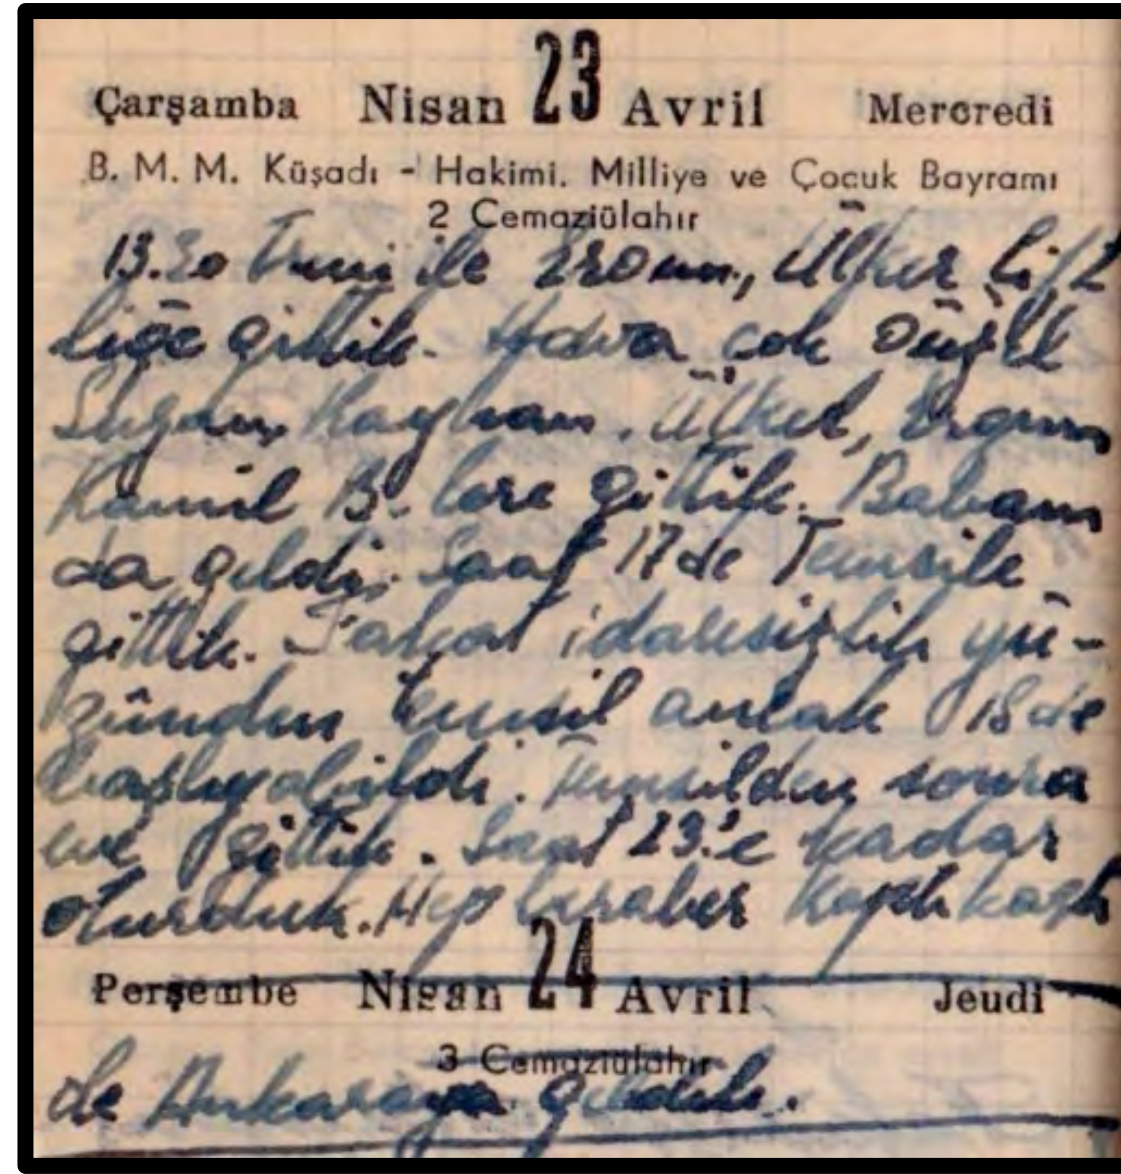 Çarşamba Nisan 23 Avril Mercredi
B. M. M. Küşadı - Hakimi. Milliye ve Çocuk Bayramı
2 Cemaziülahır
13.30 ile Ülker Çift
liğe gittik. Hava çok
Kayhan, Ülker, Ergun
Kamil B. lere gittik. Babam
da geldi. Saat 17 de Temsile
gittik. Fakat idaresizlik yü-
zünden temsil ancak 18 de
başlıyabildi. Temsilden sonra
eve gittik. Saat 23'e kadar
oturduk. Hep beraber
Perşembe Nisan 24 Avril Jeudi
3 Cemaziülahır
de Ankaraya geldik.